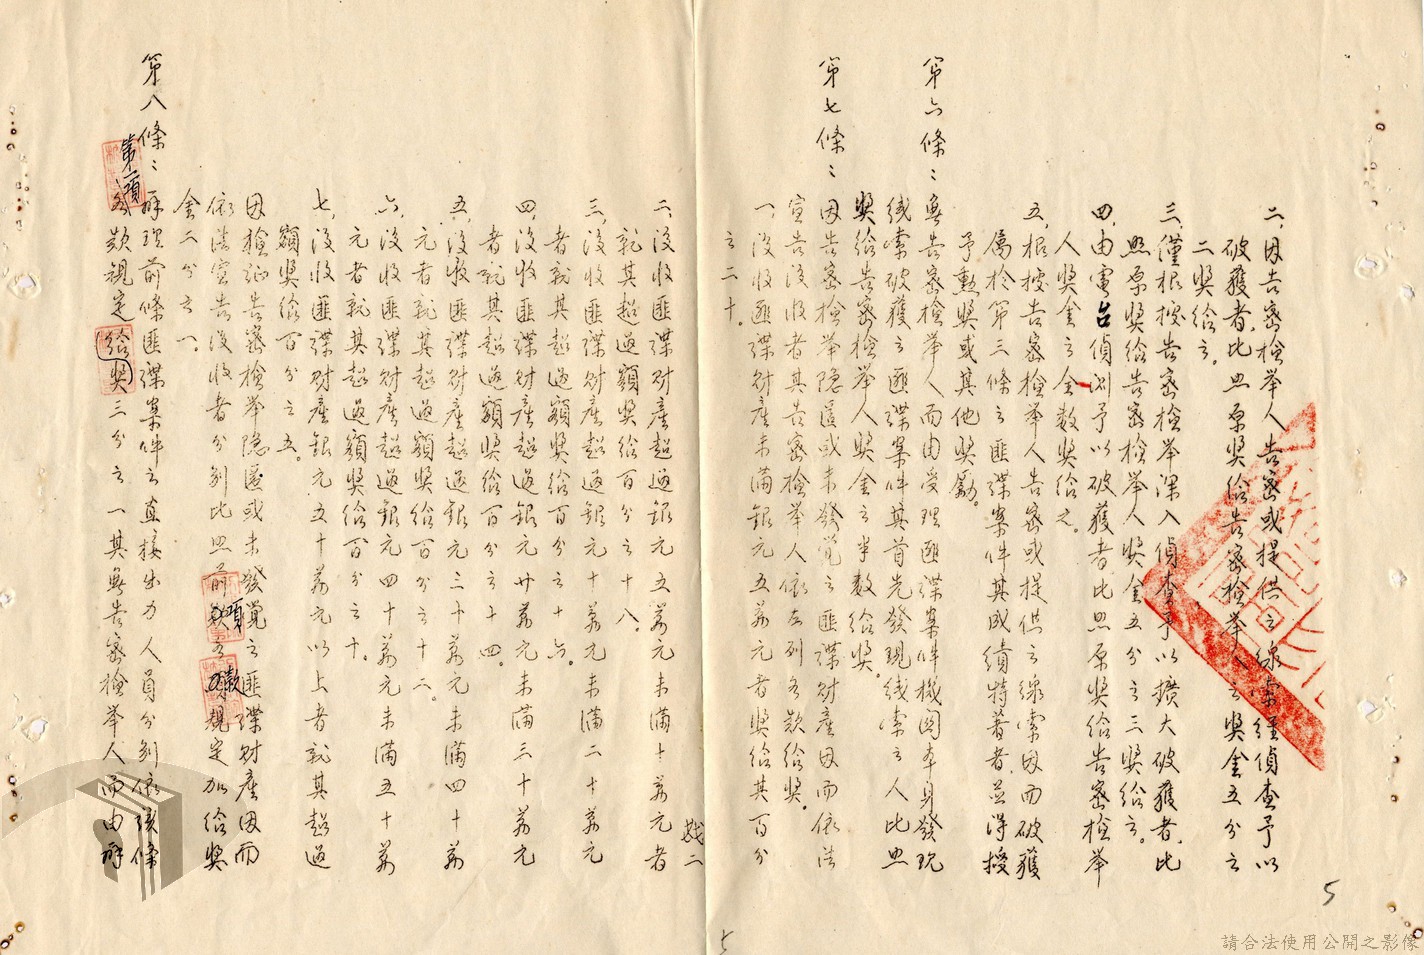 二、因告密檢舉人告密或提供之線索經偵查予以
破獲者，比照原獎給告密檢舉人之獎金五分之
二獎給之。
三、僅根據告密檢舉深入偵查予以擴大破獲者，比
照原獎給告密檢舉人獎金五分之三獎給之。
四、由電台偵測予以破獲者比照原獎給告密檢舉
人獎金之全數獎給之。
五、根據告密檢舉人告密或提供之線索因而破獲
屬於第三條之匪諜案件其成績特著者，並得授
予勳獎或其他獎勵。
第六條：無告密檢舉人而由受理匪諜案件機關本身發現
綫索破獲之匪諜案件其首先發現綫索之人比照
獎給告密檢舉人獎金之半數給獎。
第七條：因告密檢舉隱匿或未發覺之匪諜財產因而依法
宣告沒收者其告密檢舉人依左列各款給獎。
一、沒收匪諜財產未滿銀元五萬元者獎給其百分
之二十。
二、沒收匪諜財產超過銀元五萬元未滿十萬元者
就其超過額獎給百分之十八。
三、沒收匪諜財產超過銀元十萬元未滿二十萬元
者就其超過額獎給百分之十六。
四、沒收匪諜財產超過銀元廿萬元未滿三十萬元
者就其超過額獎給百分之十四。
五、沒收匪諜財產超過銀元三十萬元未滿四十萬
元者就其超過額獎給百分之十二。
六、沒收匪諜財產超過銀元四十萬元未滿五十萬
元者就其超過額獎給百分之十。
七、沒收匪諜財產銀元五十萬元以上者就其超過
額獎給百分之五。
因檢証告密檢舉隱匿或未發覺之匪諜財產因而
依法宣告沒收者分別比照前項各款規定加給獎
金二分之一。
第八條：辦理前條匪諜案件之直接出力人員分別依該條
第一項各款規定給獎三分之一其無告密檢舉人而由辦
5
5
請合法使用公開之影像